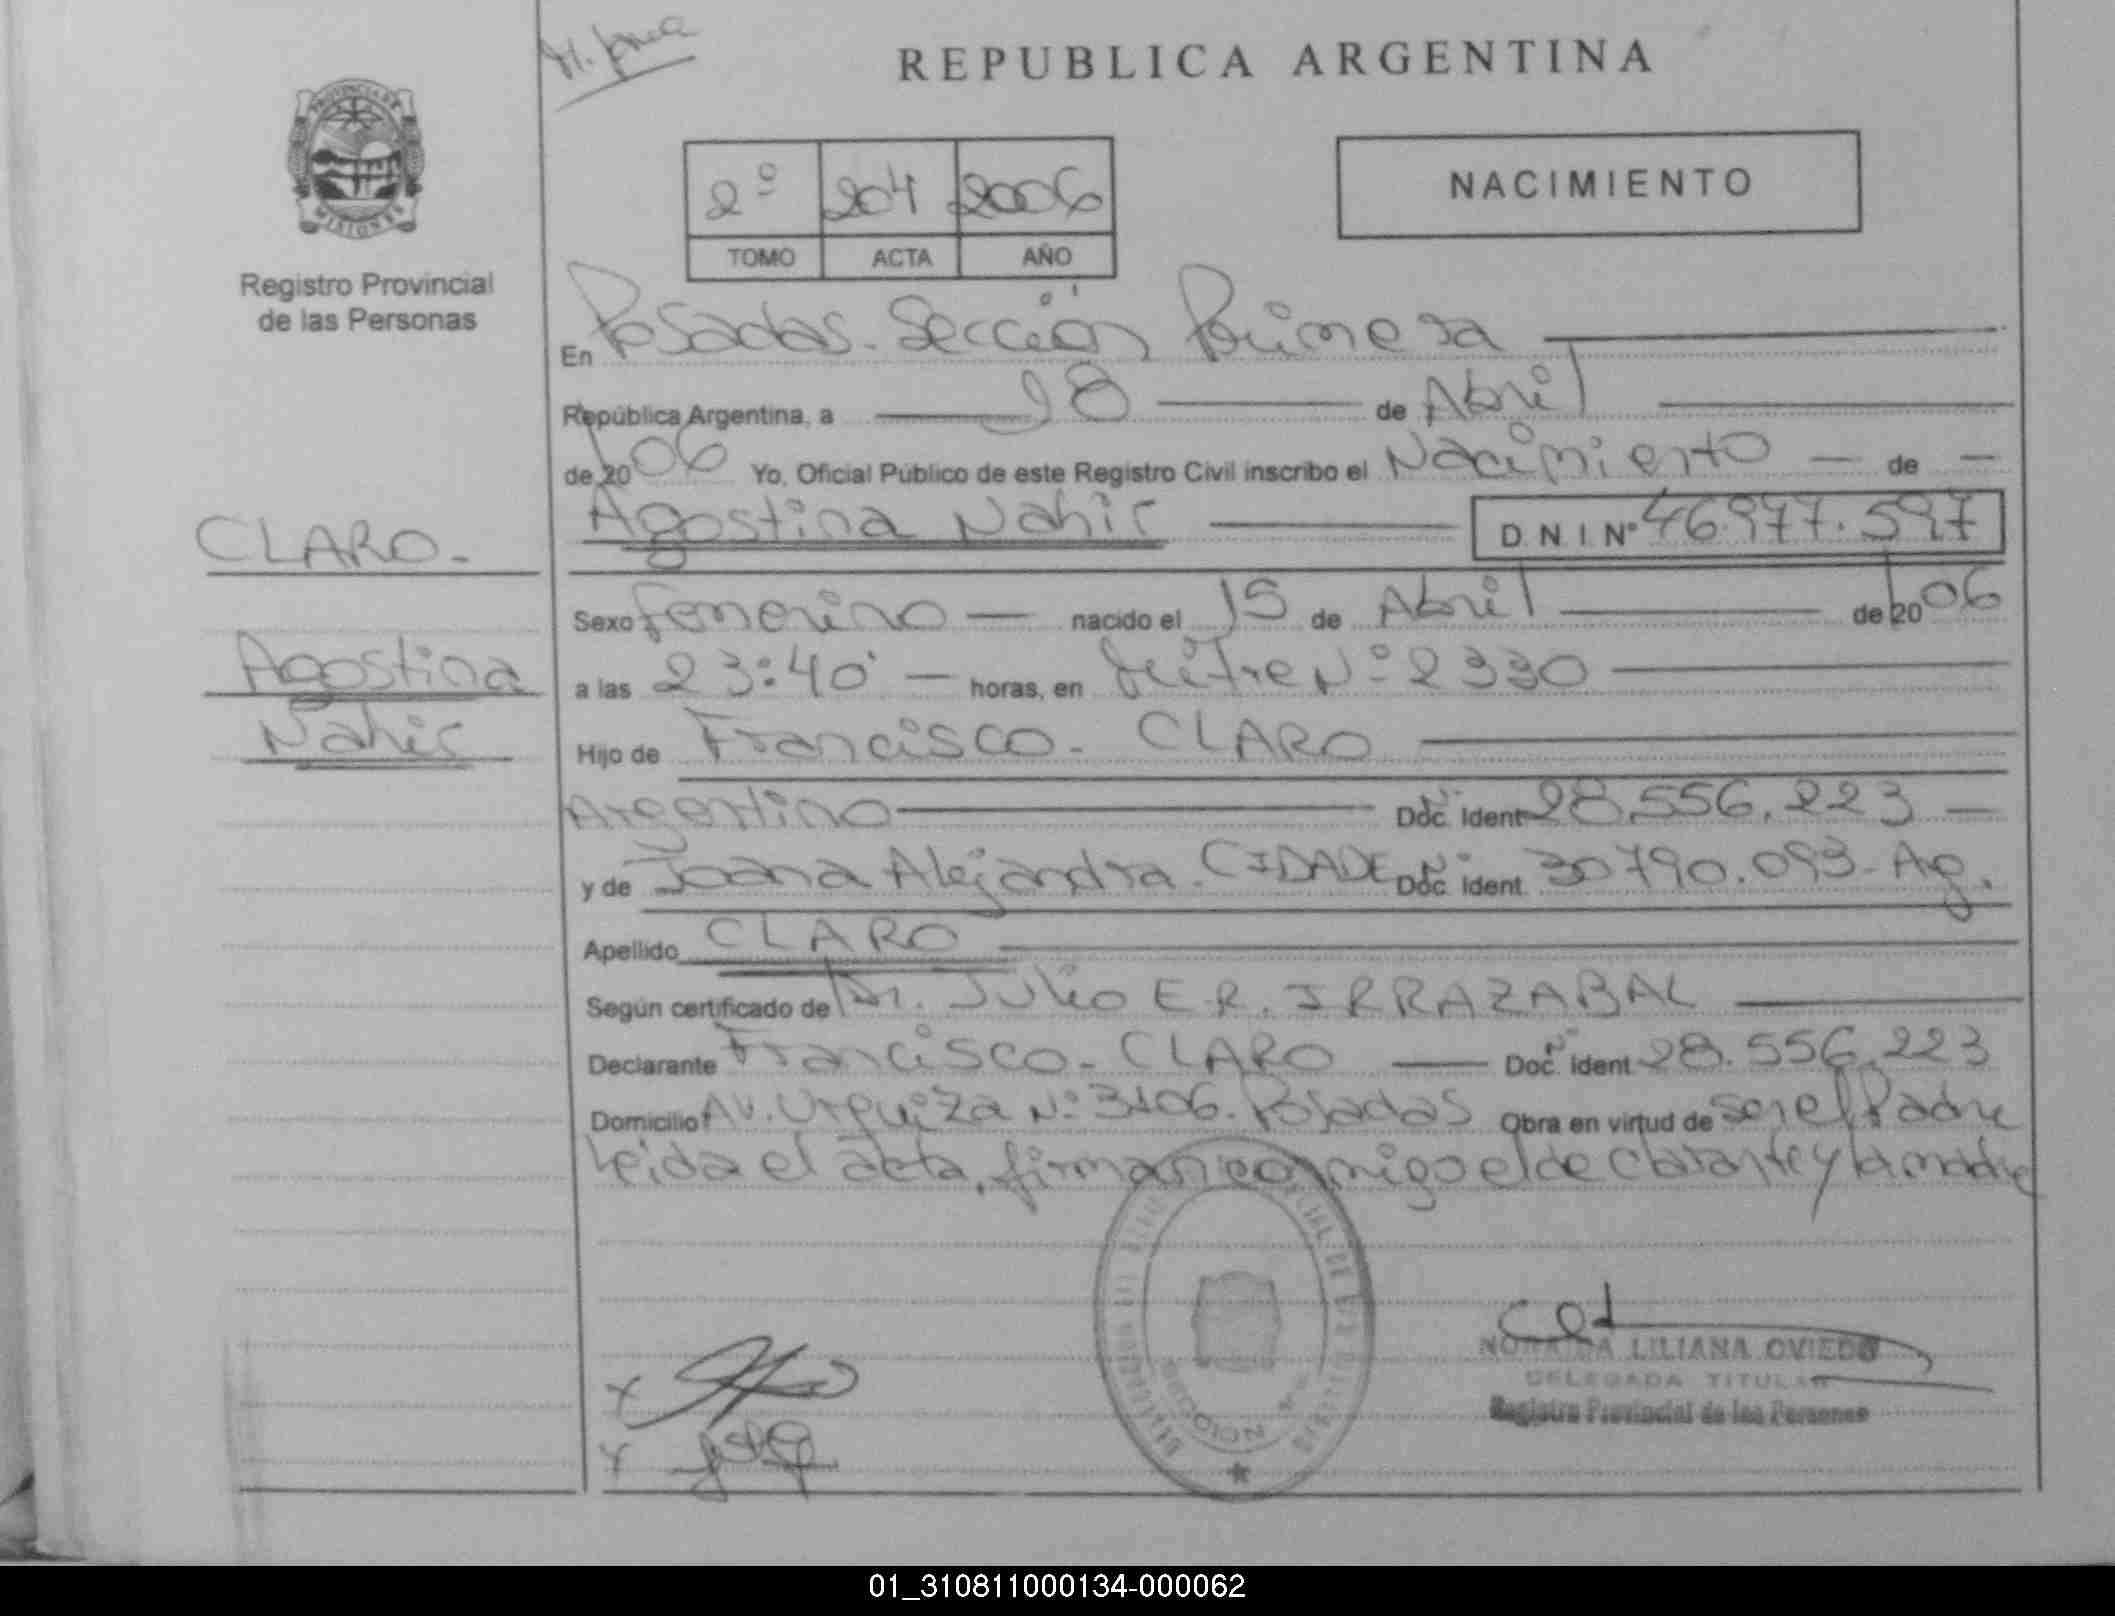 REPUBLICA ARGENTINA
PROVINCIA DE
MISIONES
Registro Provincial
de las Personas
2º 204 2006
TOMO ACTA AÑO
NACIMIENTO
En Posadas. Sección Primera
República Argentina, a 18 de Abril
de 2006 Yo, Oficial Público de este Registro Civil inscribo el Nacimiento de
Agostina Nahir D.N.I. Nº 46.977.597
CLARO.
Agostina
Nahir
Sexo femenino nacido el 15 de Abril de 2006
a las 23:40 horas, en Mitre Nº 2330
Hijo de Francisco. CLARO
Argentino Doc. Ident 28.556.223
y de Joana Alejandra. CIDADE Doc. Ident. 30790.093. Ag.
Apellido CLARO
Según certificado de Dr. Julio E.R. IRRAZABAL
Declarante Francisco. CLARO Doc. Ident 28.556.223
Domicilio Av. Urquiza Nº 3106. Posadas Obra en virtud de ser el Padre
Leida el acta, firman conmigo el declarante y la madre
LILIANA OVIEDO
DELEGADA TITULAR
Registro Provincial de las Personas
01_310811000134-000062